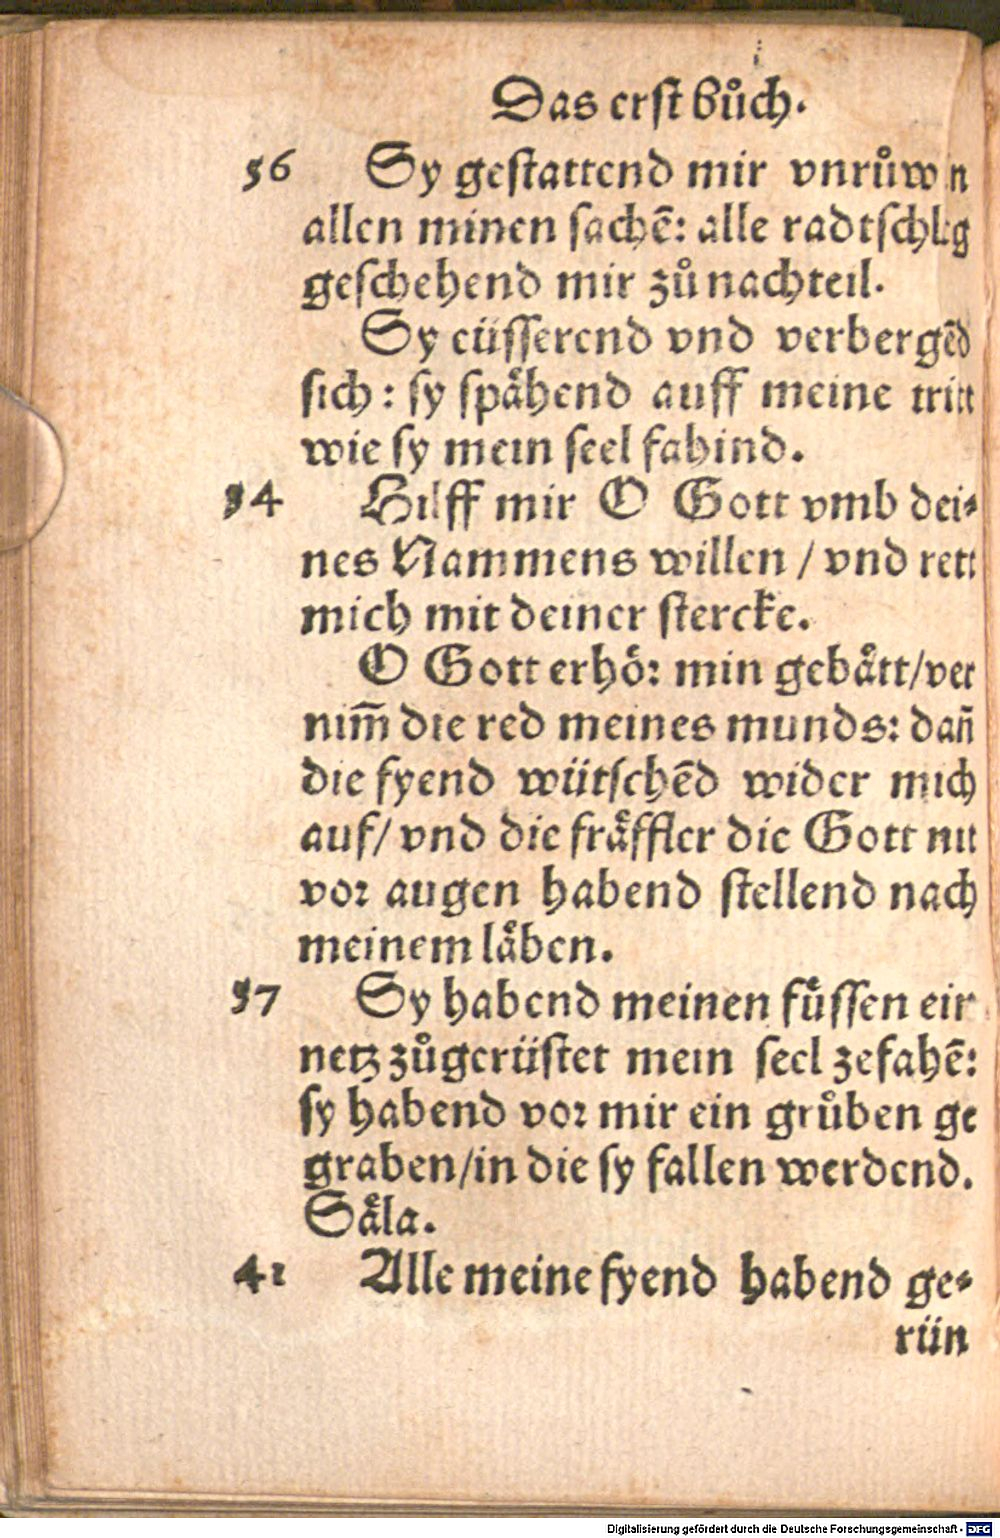 Das erst bůch.
56 Sy gestattend mir vnrůw
allen minen sachē: alle radtschleg
geschehend mir zů nachteil.
Sy eüsserend vnd verbergēd
sich: sy spåhend auff meine tritt
wie sy mein seel fahind.
54 Hilff mir O Gott vmb dei⸗
nes Nammens willen / vnd rett
mich mit deiner stercke.
O Gott erhör min gebått/ver
nim̄ die red meines munds: dañ
die fyend wütschēd wider mich
auf/ vnd die fråffler die Gott nit
vor augen habend stellend nach
meinem låben.
57 Sy habend meinen fůssen ein
netz zůgerüstet mein seel zefahē:
sy habend vor mir ein grůben ge
graben/in die sy fallen werdend.
Såla.
41 Alle meine fyend habend ge⸗
rün
Digitalisierung gefördert durch die Deutsche Forschungsgemeinschaft - DFG